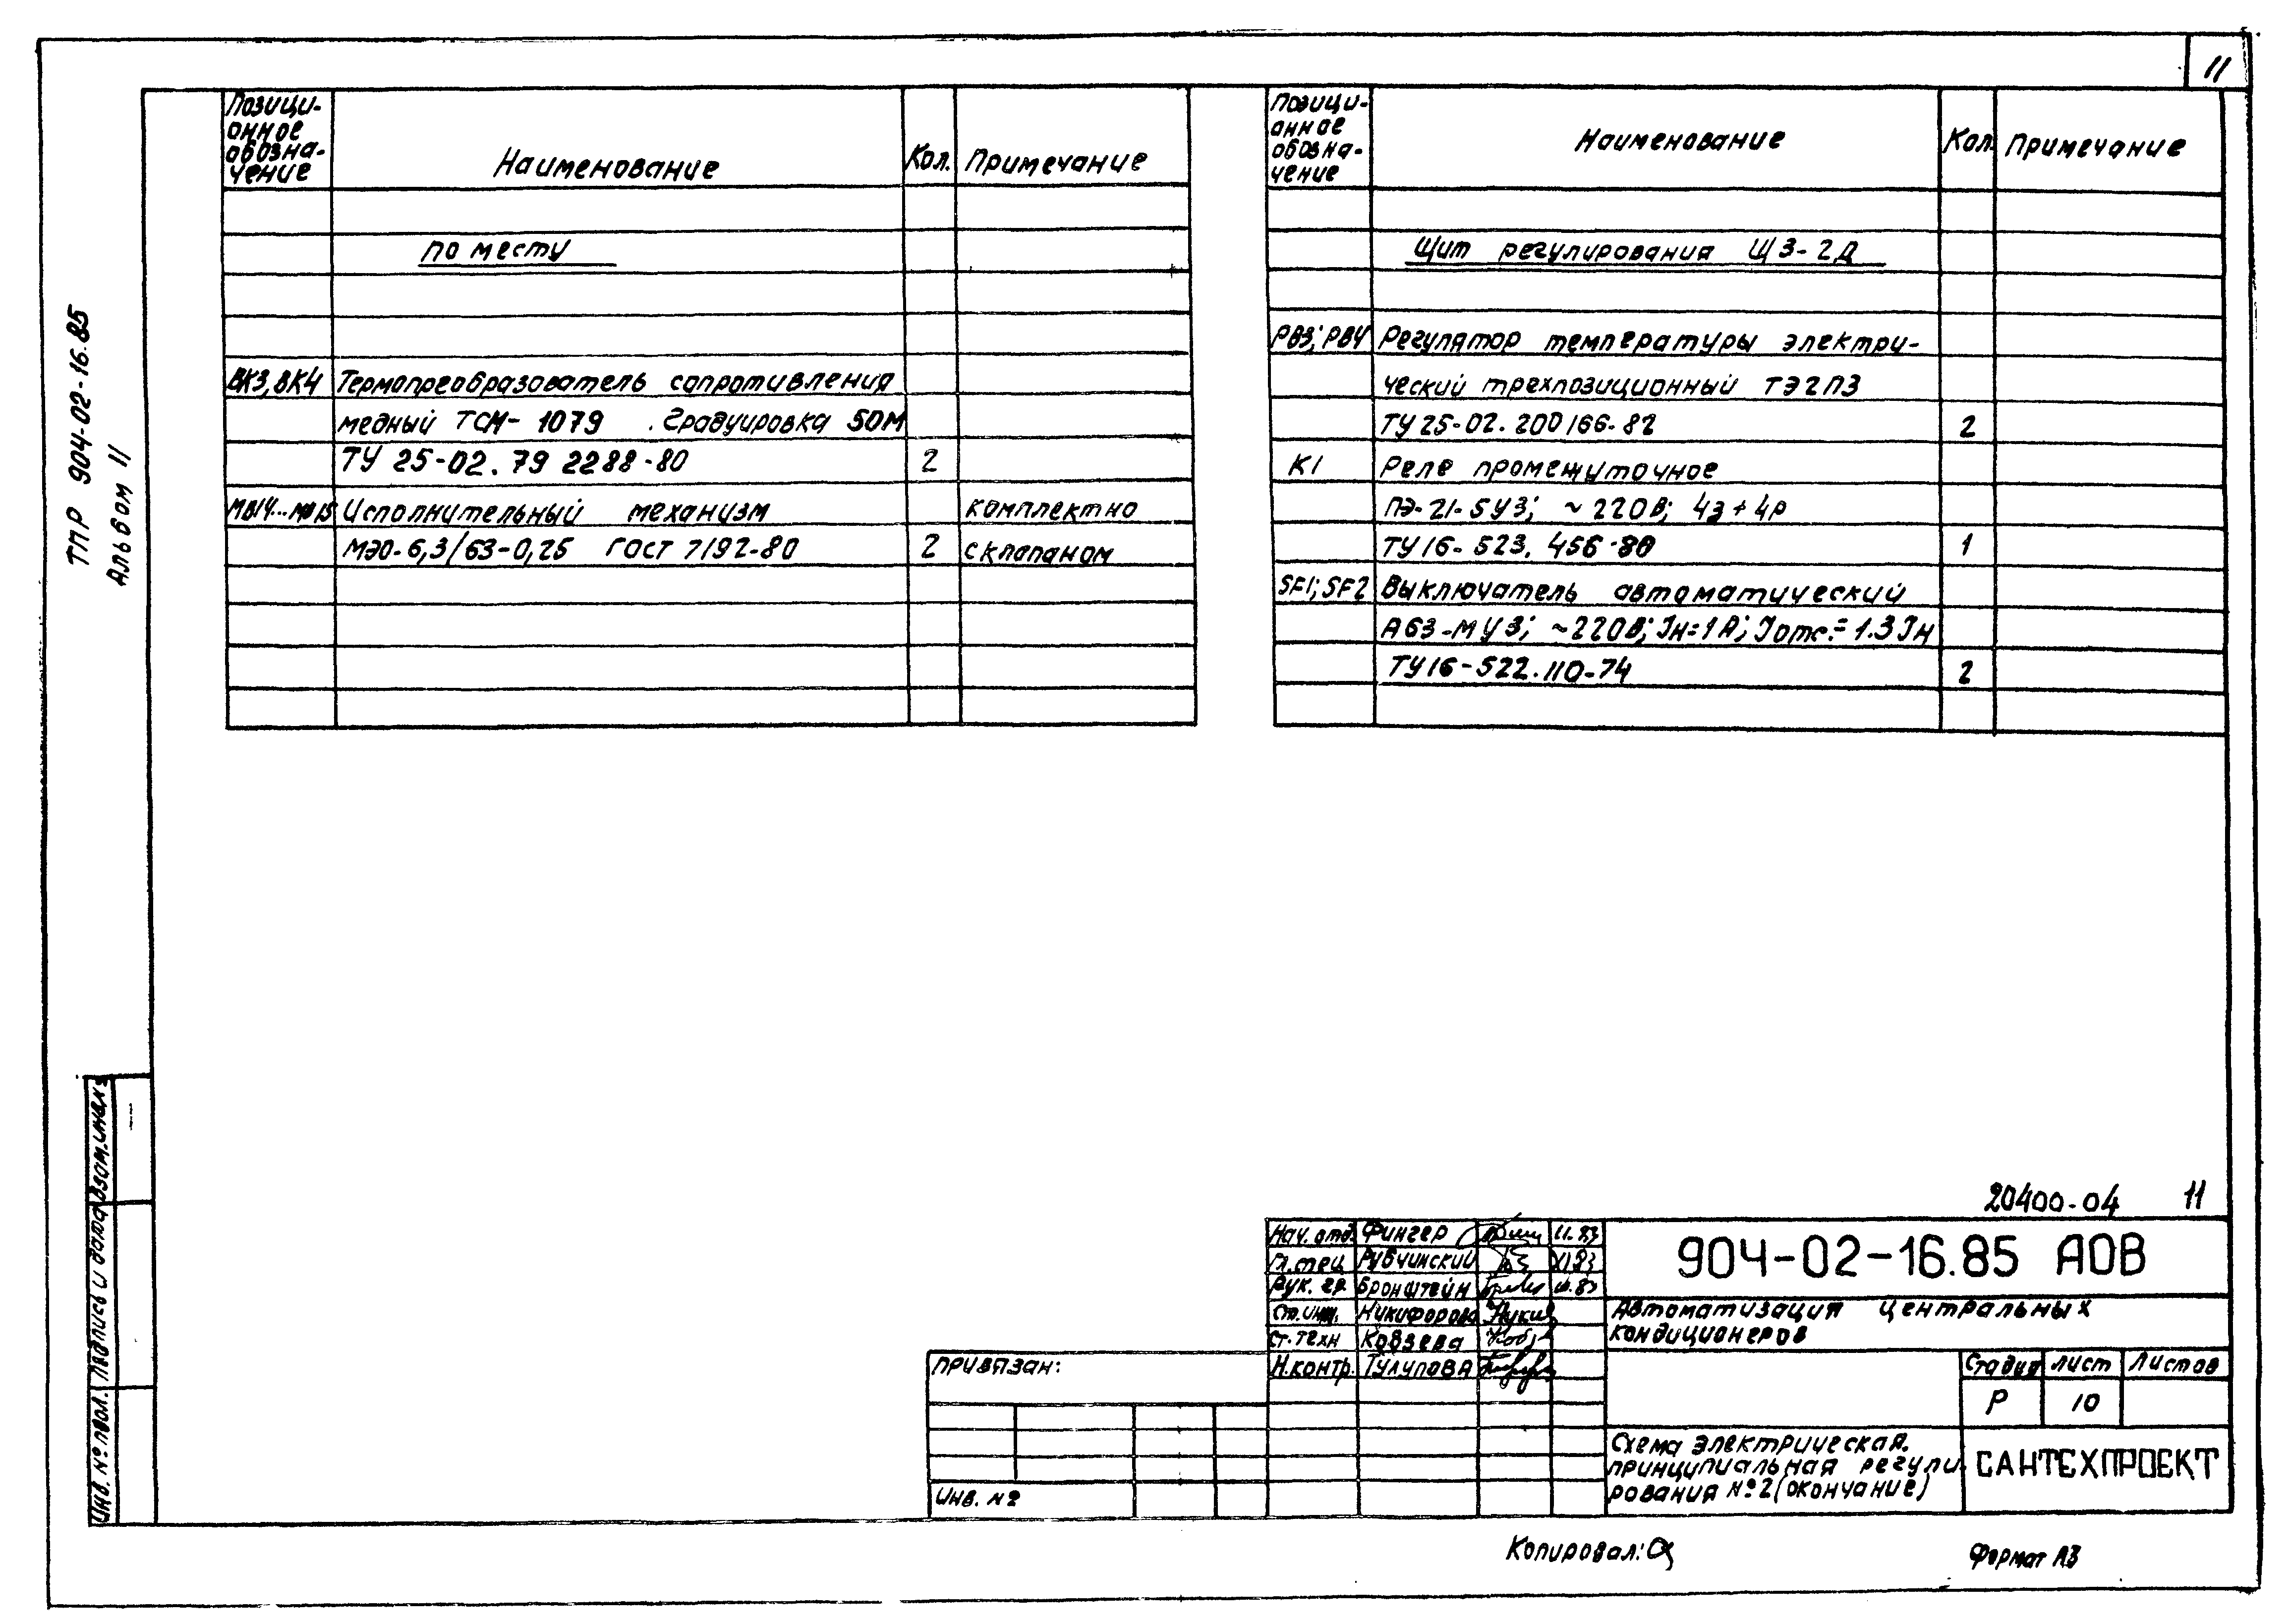 11
ТМР 904-02-16.85
Альбом 11
Позици-
онное
обозна-
чение
Наименование
Кол.
Примечание
по месту
ВК3, ВК4 Термопреобразователь сопротивления
медный ТСМ-1079 . Градуировка 50М
ТУ 25-02. 79 2288-80 2
Исполнительный механизм комплектно
МЭО-6,3/63-0,25 ГОСТ 7192-80 2 с клапаном
Позици-
онное
обозна-
чение
Наименование
Кол.
Примечание
Щит регулирования Щ3-2Д
РВ3; РВ4 Регулятор температуры электри-
ческий трехпозиционный ТЭ2П3
ТУ 25-02. 200166-82 2
К1 Реле промежуточное
ПЭ-21-5У3; ~220В; 4з+4р
ТУ16-523. 456-80 1
SF1; SF2 Выключатель автоматический
А63-МУ3; ~220В; Iн=1А; Iотс.=1.3Iн
ТУ16-522.110-74 2
Взам.инв.№
Подпись и дата
Инв. № подл.
20400-04 11
Нач. отд. Фингер 11.83
Гл. спец Рубчинский XI.83
Рук. гр. Бронштейн
Ст. инж. Никифорова
Ст. техн Кобзева
Н.контр. Тулупова
904-02-16.85 АОВ
Автоматизация центральных
кондиционеров
Стадия Лист Листов
Р 10
Схема электрическая
принципиальная регули-
рования №2 (окончание)
САНТЕХПРОЕКТ
Привязан:
Инв. №
Копировал:
Формат А3